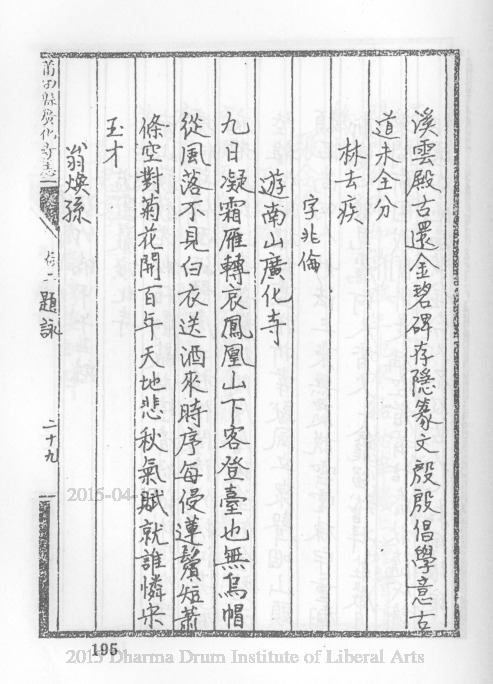 溪雲殿古還金碧碑存隱篆文殷殷倡學意古
道未全分
林去疾
字兆倫
遊南山廣化寺
九日凝霜雁轉哀鳳凰山下客登臺也無烏帽
從風落不見白衣送酒來時序每侵蓬鬢短蕭
條空對菊花開百年天地悲秋氣賦就誰憐宋
玉才
翁煥孫
莆田縣廣化寺志
卷二 題詠 二十九
195
2015-04-
2015 Dharma Drum Institute of Liberal Arts